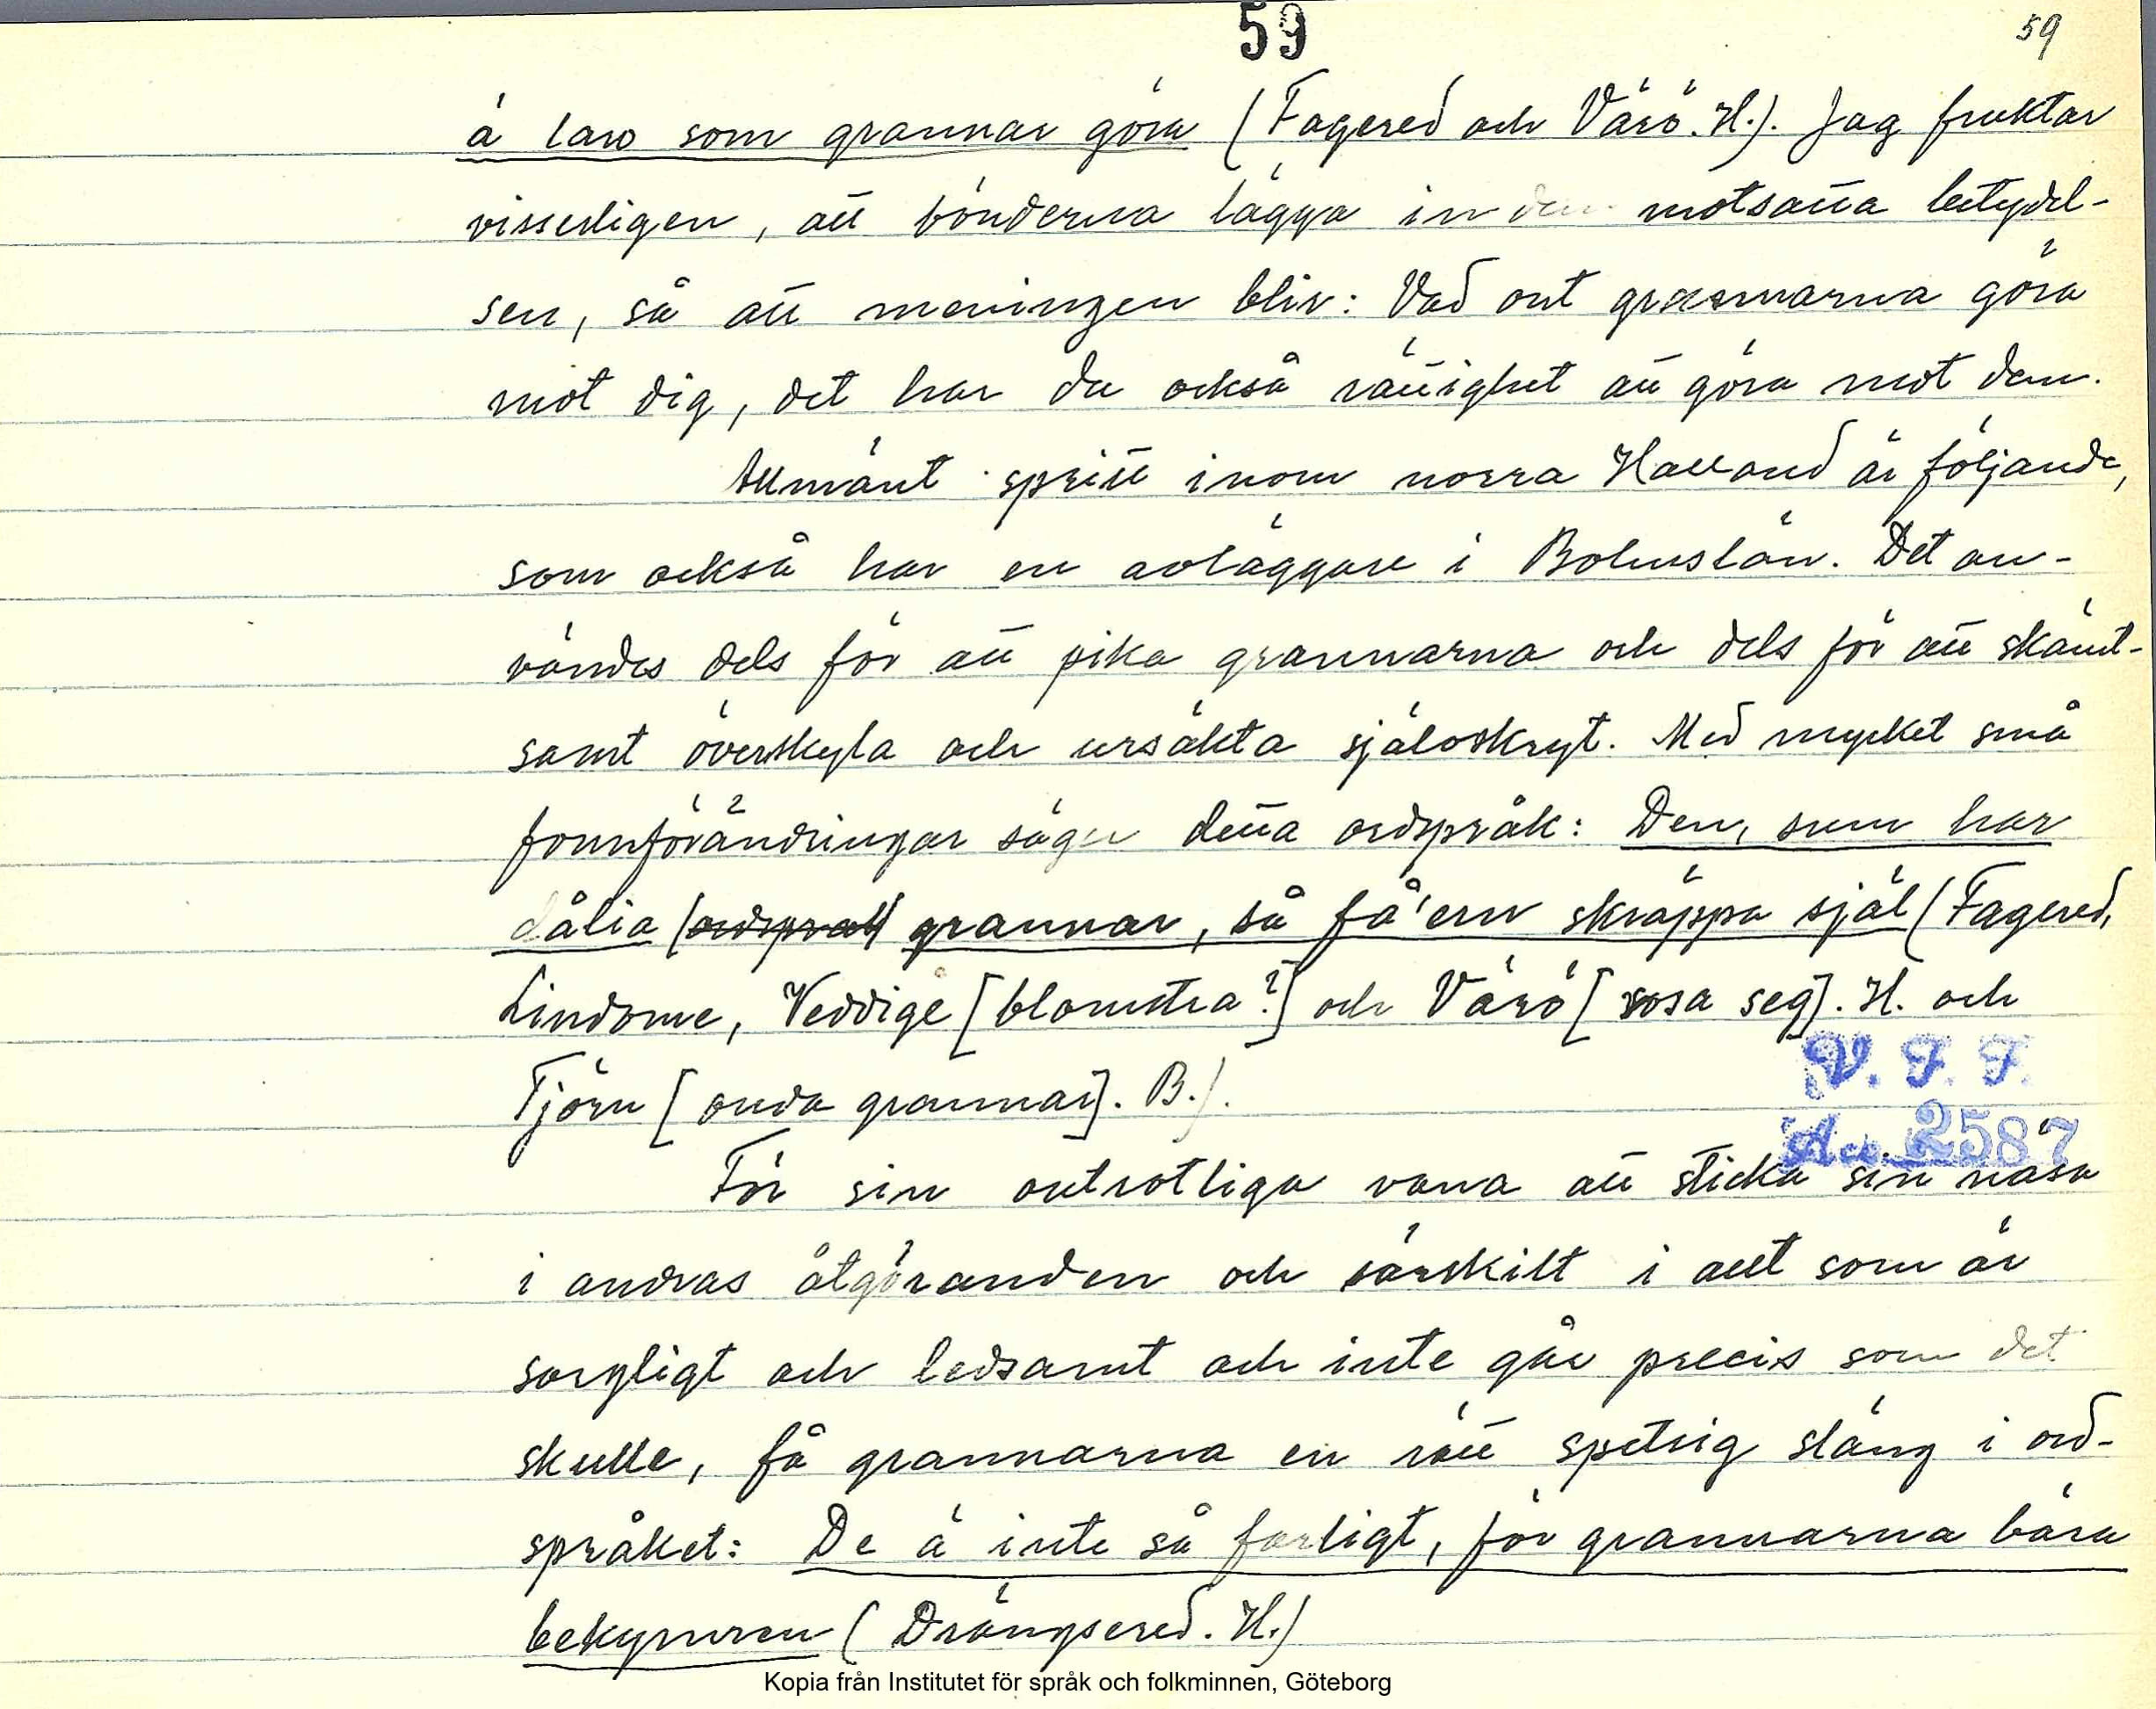 59
59
ä law som grannar göra (Fagered och Värö. H.). Jag fruktar
visserligen, att bönderna lägga in den motsatta betydel-
sen, så att meningen blir: Vad ont grannarna göra
mot dig, det har du också rättighet att göra mot dem.
Allmänt spritt inom norra Halland är följande,
som också har en avläggare i Bohuslän. Det an-
vändes dels för att pika grannarna och dels för att skämt-
samt överskyla och ursäkta självskryt. Med mycket små
formförändringar säger detta ordspråk: Den, sum har
dålia (ordspråk) grannar, så få'en skräppa själ (Fagered,
Lindome, Veddige [blomstra?] och Värö [rosa seg]. H. och
Tjörn [onda grannar]. B.).
V. F. F.
Acc. 2587
För sin outrotliga vana att sticka sin näsa
i andras åtgöranden och särskilt i allt som är
sorgligt och ledsamt och inte går precis som det
skulle, få grannarna en rätt spetsig släng i ord-
språket: De ä inte så farligt, för grannarna bära
bekymren (Drängsered. H.)
Kopia från Institutet för språk och folkminnen, Göteborg